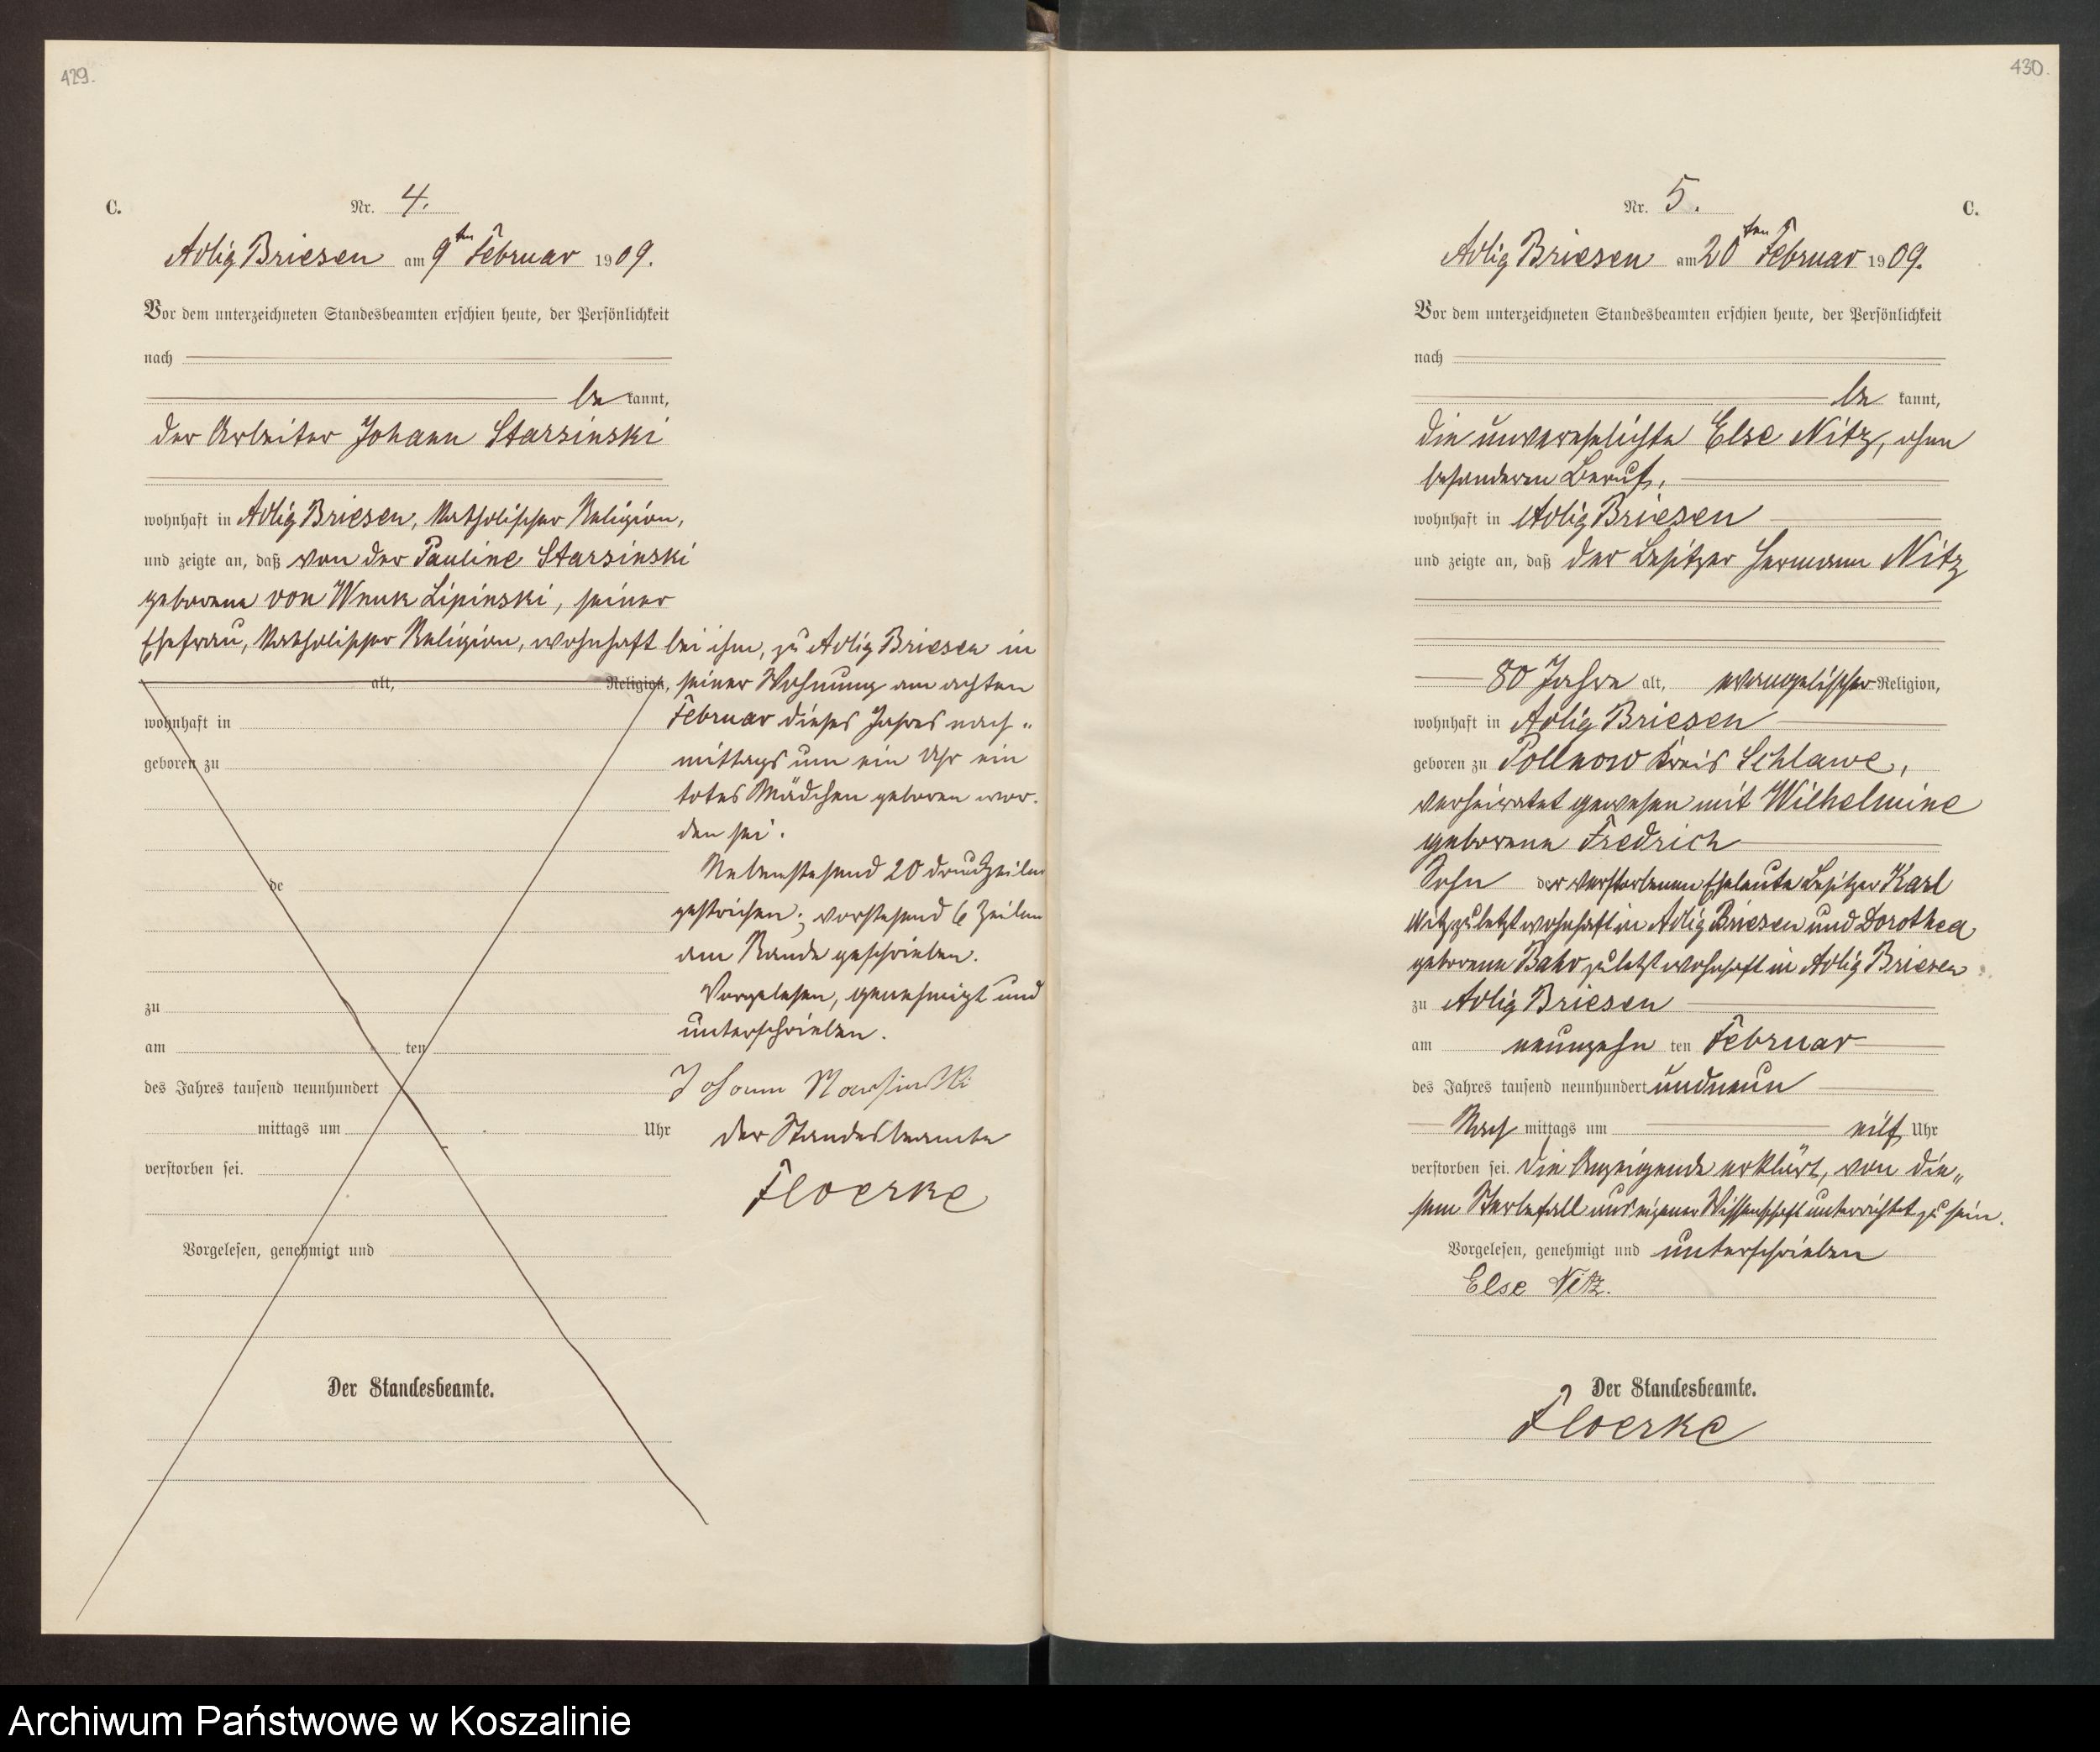 429.
C.
Nr. 4.
Adlig Briesen am 9ten Februar 1909.
Vor dem unterzeichneten Standesbeamten erschien heute, der Persönlichkeit
nach
be kannt,
der Arbeiter Johann Starsinski
wohnhaft in Adlig Briesen, katholischer Religion,
und zeigte an, daß von der Pauline Starsinski
geborene von Wnuk Lipinski, seiner
Ehefrau, katholischer Religion, wohnhaft bei ihm, zu Adlig Briesen in
alt, Religion, seiner Wohnung am achten
wohnhaft in Februar dieses Jahres nach„
geboren zu mittags um ein Uhr ein
totes Mädchen geboren wor-
den sei.
de Nebenstehend 20 Druckzeilen
gestrichen; vorstehend 6 Zeilen
am Rande geschrieben.
zu Vorgelesen, genehmigt und
am ten unterschrieben.
des Jahres tausend neunhundert Johann Starsinski
mittags um Uhr Der Standesbeamte
verstorben sei. Floerke
Vorgelesen, genehmigt und
Der Standesbeamte.
430.
Nr. 5. C.
Adlig Briesen am 20ten Februar 1909.
Vor dem unterzeichneten Standesbeamten erschien heute, der Persönlichkeit
nach
be kannt,
die unverehelichte Else Nitz, ohne
besonderen Beruf,
wohnhaft in Adlig Briesen
und zeigte an, daß der Besitzer Hermann Nitz
80 Jahre alt, evangelischer Religion,
wohnhaft in Adlig Briesen
geboren zu Pollnow Kreis Schlawe,
verheiratet gewesen mit Wilhelmine
geborene Fredrich
Sohn der verstorbenen Eheleute Besitzer Karl
Nitz zuletzt wohnhaft in Adlig Briesen und Dorothea
geborene Bahr zuletzt wohnhaft in Adlig Briesen
zu Adlig Briesen
am neunzehn ten Februar
des Jahres tausend neunhundert undneun
Nach mittags um elf Uhr
verstorben sei. Die Anzeigende erklärt, von die„
sem Sterbefall aus eigener Wissenschaft unterrichtet zu sein.
Vorgelesen, genehmigt und unterschrieben
Else Nitz.
Der Standesbeamte.
Floerke
Archiwum Państwowe w Koszalinie